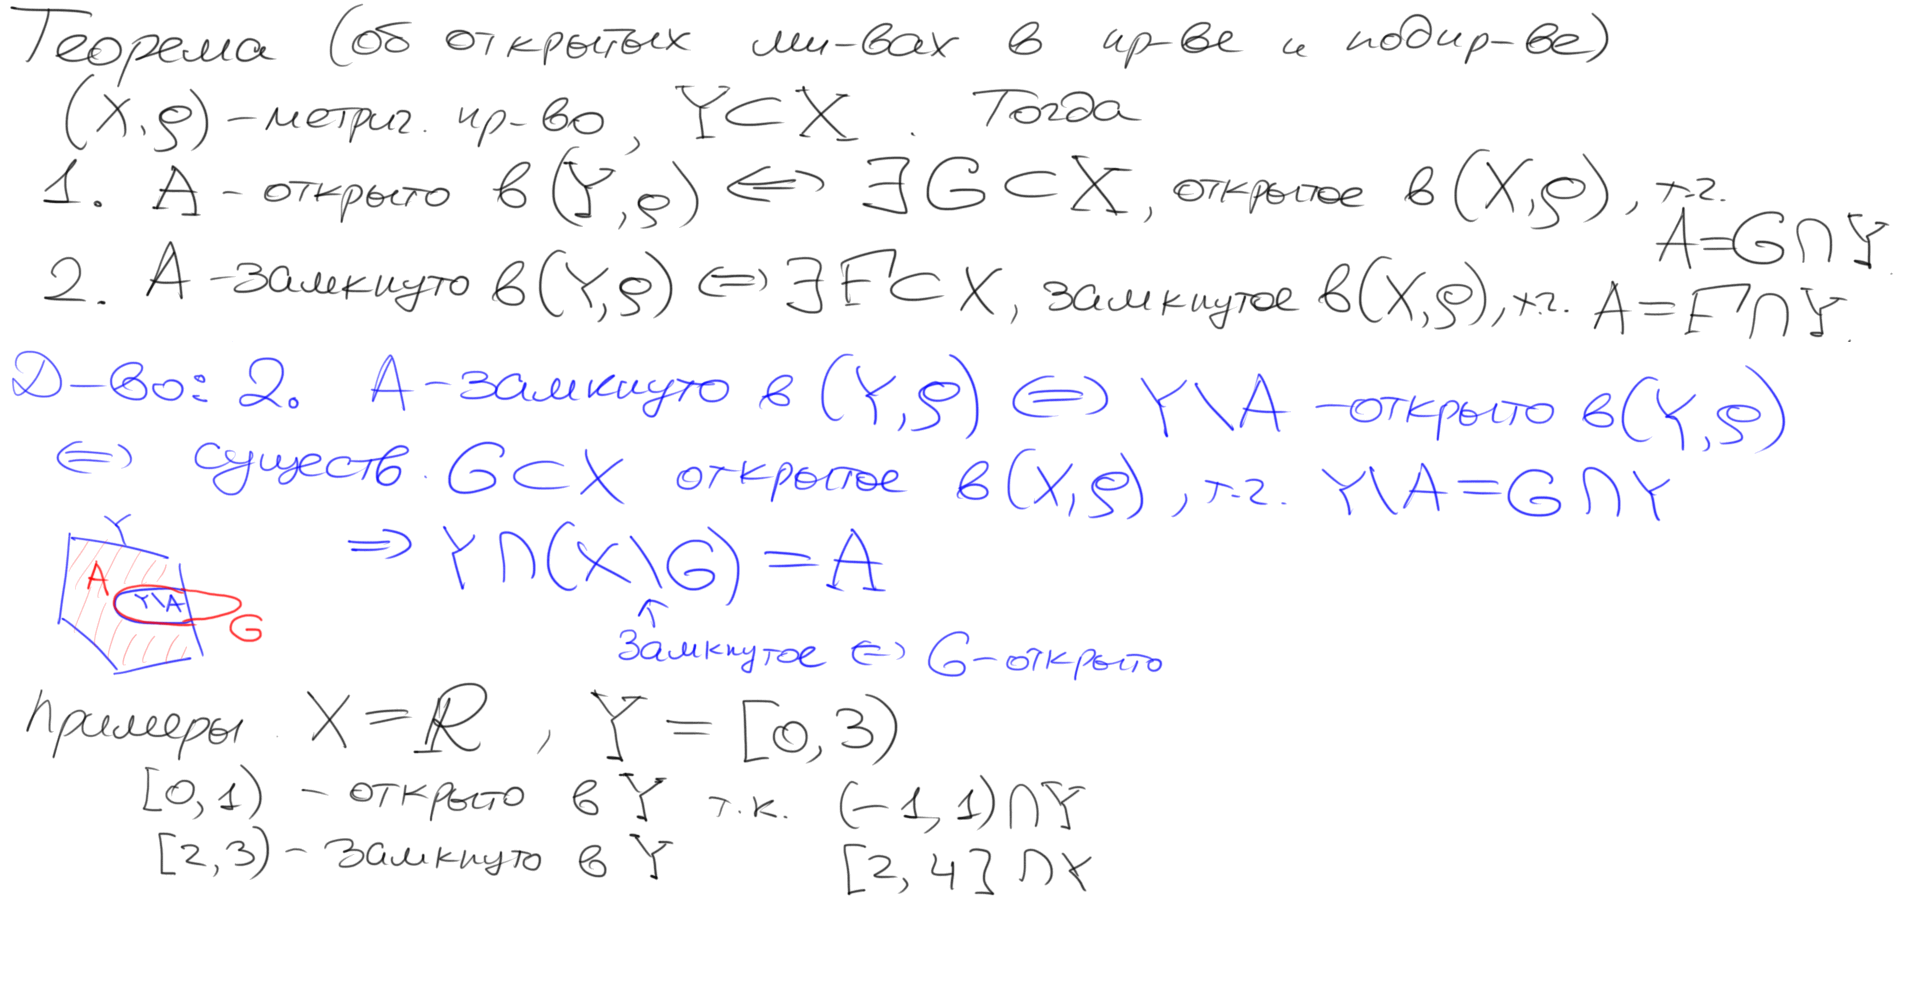 Теорема (об открытых мн-вах в пр-ве и подпр-ве)
(X,ρ) - метрич. пр-во, Y⊂X. Тогда
1. A - открыто в (Y,ρ) ⇔ ∃G⊂X, открытое в (X,ρ), т.ч.
A=G∩Y.
2. A - замкнуто в (Y,ρ) ⇔ ∃F⊂X, замкнутое в (X,ρ), т.ч. A=F∩Y.
Д-во: 2. A - замкнуто в (Y,ρ) ⇔ Y\A - открыто в (Y,ρ)
⇔ существ. G⊂X открытое в (X,ρ), т.ч. Y\A=G∩Y
⇒ Y∩(X\G)=A
Y
A
Y\A
G
↑
замкнутое ⇔ G - открыто
Примеры. X=ℝ, Y=[0,3)
[0,1) - открыто в Y т.к. (-1,1)∩Y
[2,3) - замкнуто в Y [2,4]∩Y